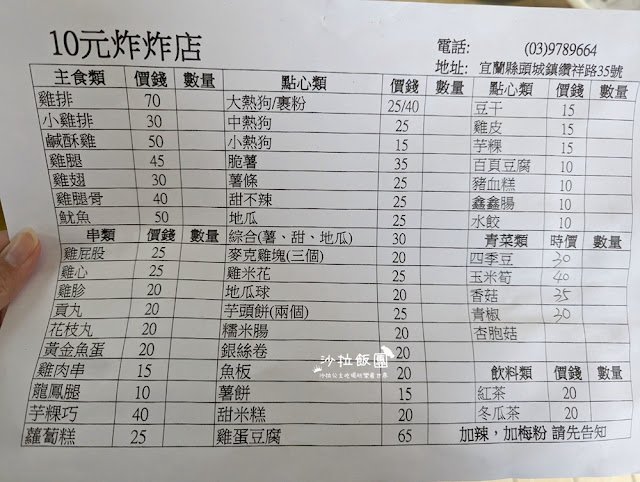 10元炸炸店
電話: (03)9789664
地址: 宜蘭縣頭城鎮纘祥路35號
主食類 價錢 數量 點心類 價錢 數量 點心類 價錢 數量
雞排 70 大熱狗/裹粉 25/40 豆干 15
小雞排 30 中熱狗 25 雞皮 15
鹹酥雞 50 小熱狗 15 芋粿 15
雞腿 45 脆薯 35 百頁豆腐 10
雞翅 30 薯條 25 豬血糕 10
雞腿骨 40 甜不辣 25 鑫鑫腸 10
魷魚 50 地瓜 25 水餃 10
串類 價錢 數量 綜合(薯、甜、地瓜) 30 青菜類 時價 數量
雞屁股 25 麥克雞塊(三個) 20 四季豆 30
雞心 25 雞米花 25 玉米筍 40
雞胗 20 地瓜球 20 香菇 35
貢丸 20 芋頭餅(兩個) 25 青椒 30
花枝丸 20 糯米腸 20 杏胞菇
黃金魚蛋 20 銀絲卷 20
雞肉串 15 魚板 20 飲料類 價錢 數量
龍鳳腿 10 薯餅 15 紅茶 20
芋粿巧 40 甜米糕 20 冬瓜茶 20
蘿蔔糕 25 雞蛋豆腐 65 加辣，加梅粉 請先告知
沙拉飯團